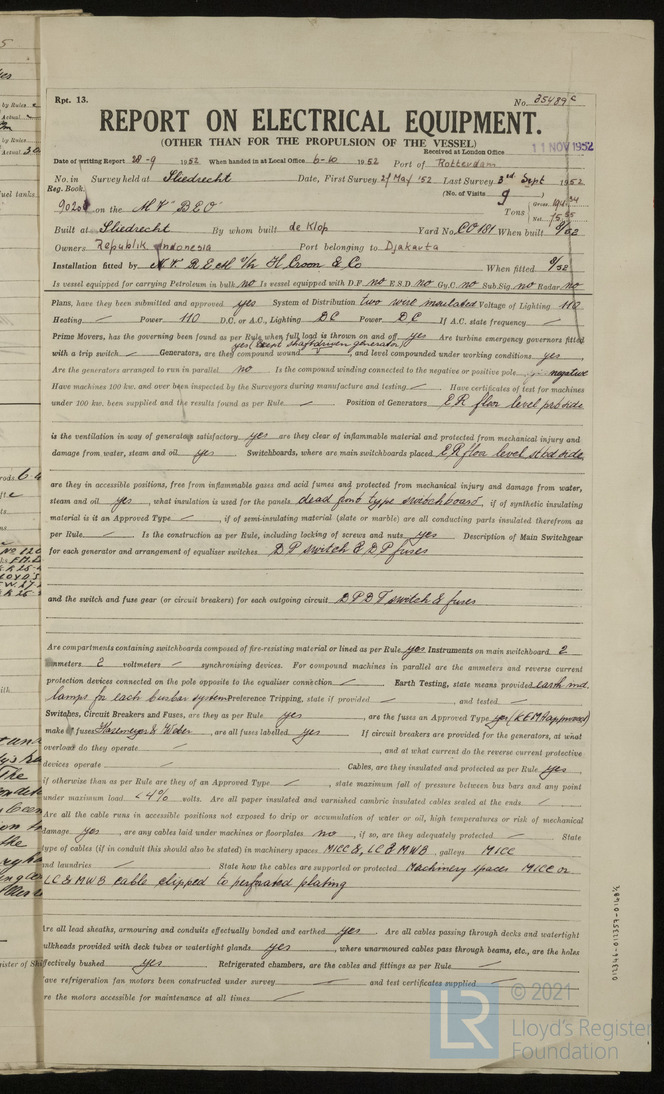 Rpt. 13.
No. 35489c
REPORT ON ELECTRICAL EQUIPMENT.
(OTHER THAN FOR THE PROPULSION OF THE VESSEL)
Received at London Office 11 NOV 1952
Date of writing Report 28-9 1952 When handed in at Local Office 6-10 1952 Port of Rotterdam
No. in Survey held at Sliedrecht Date, First Survey 21 May '52 Last Survey 3rd Sept 1952
Reg. Book. (No. of Visits 9 )
on the M.V. "DEO" Tons Gross Net
Built at Sliedrecht By whom built de Klop Yard No. CO 181 When built 9/52
Owners Republik Indonesia Port belonging to Djakarta
Installation fitted by H. Croon & Co When fitted 9/52
Is vessel equipped for carrying Petroleum in bulk no Is vessel equipped with D.F. no E.S.D. no Gy.C. no Sub.Sig. no Radar no
Plans, have they been submitted and approved yes System of Distribution two wire insulated Voltage of Lighting 110
Heating — Power 110 D.C. or A.C., Lighting DC Power DC If A.C. state frequency —
Prime Movers, has the governing been found as per Rule when full load is thrown on and off yes Are turbine emergency governors fitted
yes (except shaftdriven generator)
with a trip switch — Generators, are they compound wound , and level compounded under working conditions yes
Are the generators arranged to run in parallel no Is the compound winding connected to the negative or positive pole negative
Have machines 100 kw. and over been inspected by the Surveyors during manufacture and testing — Have certificates of test for machines
under 100 kw. been supplied and the results found as per Rule — Position of Generators E R floor level port side
is the ventilation in way of generators satisfactory yes are they clear of inflammable material and protected from mechanical injury and
damage from water, steam and oil yes Switchboards, where are main switchboards placed E R floor level stbd side
are they in accessible positions, free from inflammable gases and acid fumes and protected from mechanical injury and damage from water,
steam and oil yes , what insulation is used for the panels dead front type switchboard , if of synthetic insulating
material is it an Approved Type — , if of semi-insulating material (slate or marble) are all conducting parts insulated therefrom as
per Rule — Is the construction as per Rule, including locking of screws and nuts yes Description of Main Switchgear
for each generator and arrangement of equaliser switches D P switch & D P fuses
and the switch and fuse gear (or circuit breakers) for each outgoing circuit D P D T switch & fuses
Are compartments containing switchboards composed of fire-resisting material or lined as per Rule yes Instruments on main switchboard 2
ammeters 2 voltmeters — synchronising devices. For compound machines in parallel are the ammeters and reverse current
protection devices connected on the pole opposite to the equaliser connection — Earth Testing, state means provided earth ind.
lamps for each busbar system Preference Tripping, state if provided — , and tested —
Switches, Circuit Breakers and Fuses, are they as per Rule yes , are the fuses an Approved Type yes (KEMA approved)
make of fuses Hasemeyer & Weber , are all fuses labelled yes If circuit breakers are provided for the generators, at what
overload do they operate — , and at what current do the reverse current protective
devices operate — Cables, are they insulated and protected as per Rule yes
if otherwise than as per Rule are they of an Approved Type — , state maximum fall of pressure between bus bars and any point
under maximum load <4% volts. Are all paper insulated and varnished cambric insulated cables sealed at the ends —
Are all the cable runs in accessible positions not exposed to drip or accumulation of water or oil, high temperatures or risk of mechanical
damage yes , are any cables laid under machines or floorplates no , if so, are they adequately protected — State
type of cables (if in conduit this should also be stated) in machinery spaces MICC &, LC & MWB , galleys MICC
and laundries — State how the cables are supported or protected Machinery spaces MICC or
LC & MWB cable clipped to perforated plating
Are all lead sheaths, armouring and conduits effectually bonded and earthed yes Are all cables passing through decks and watertight
ulkheads provided with deck tubes or watertight glands yes , where unarmoured cables pass through beams, etc., are the holes
ffectively bushed yes Refrigerated chambers, are the cables and fittings as per Rule —
ave refrigeration fan motors been constructed under survey — and test certificates supplied —
re the motors accessible for maintenance at all times —
© 2021
LR
Lloyd's Register
Foundation